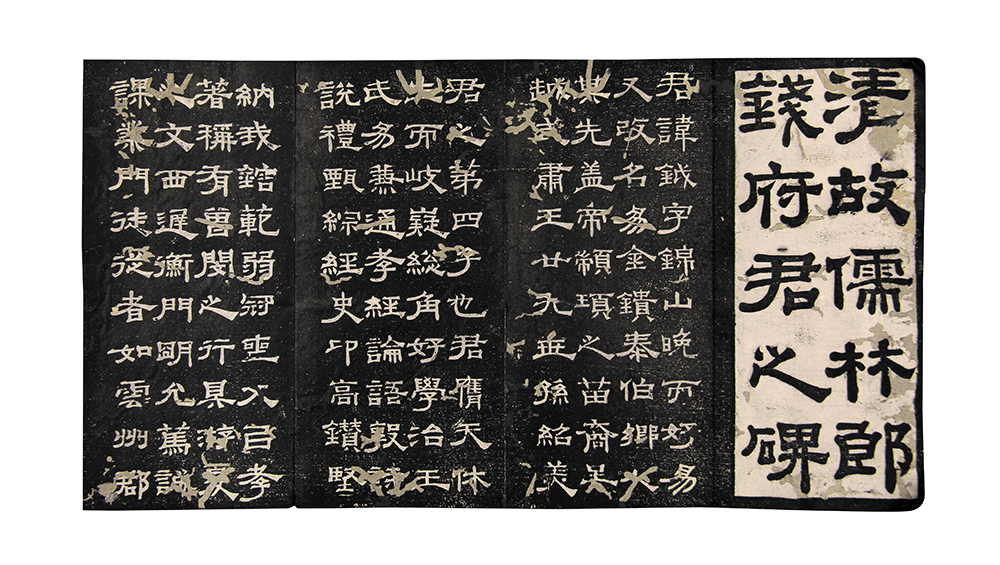 清故儒林郎
錢府君之碑
君諱鉞字錦山晚而好易
又改名易金鐀泰伯鄉人
其先蓋帝顓頊之苗裔吴
越武肅王廿九世孫紹美
君之第四子也君膺天休
生而岐嶷総角好學治王
氏易兼通孝經論語詩
說禮甄綜經史卬高鑽堅
納我範弱冠孝
著稱有閔之行具游夏
之文西遲衡門朙允篤誠
課業門徒從者如雲州郡